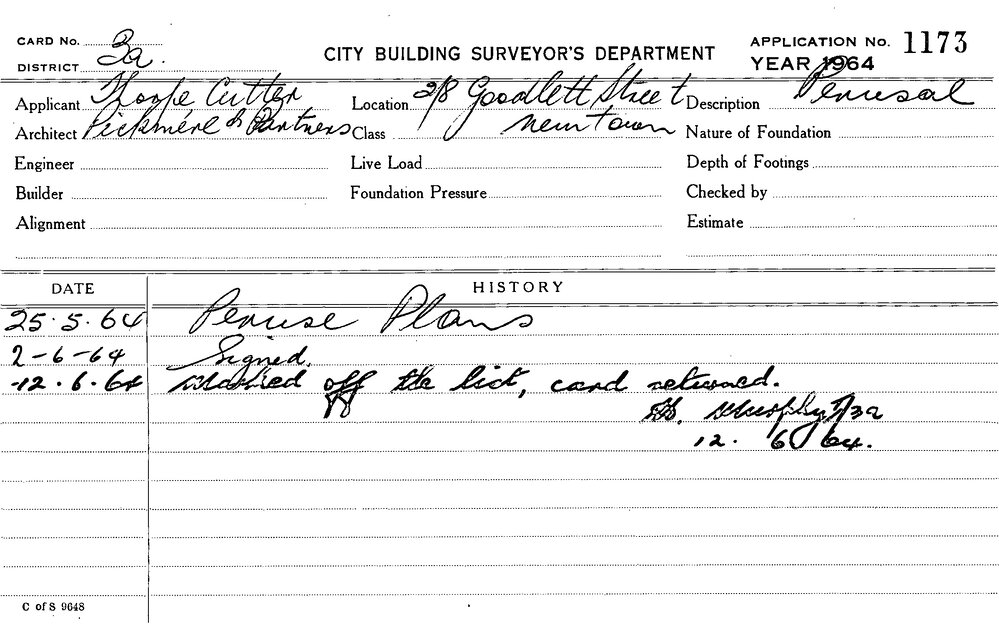 CARD No. 3a
CITY BUILDING SURVEYOR'S DEPARTMENT
APPLICATION No. 1173
DISTRICT
YEAR 1964
Applicant Thorpe Cutter Location 2/8 Goodlett Street Description Perusal
Architect Pickmere & Partners Class Newtown Nature of Foundation
Engineer Live Load Depth of Footings
Builder Foundation Pressure Checked by
Alignment Estimate
DATE HISTORY
25.5.64 Peruse Plans
2-6-64 Signed.
12.6.64 Marked off the list, card returned.
Murphy 3a
12. 6 64.
C of S 9648